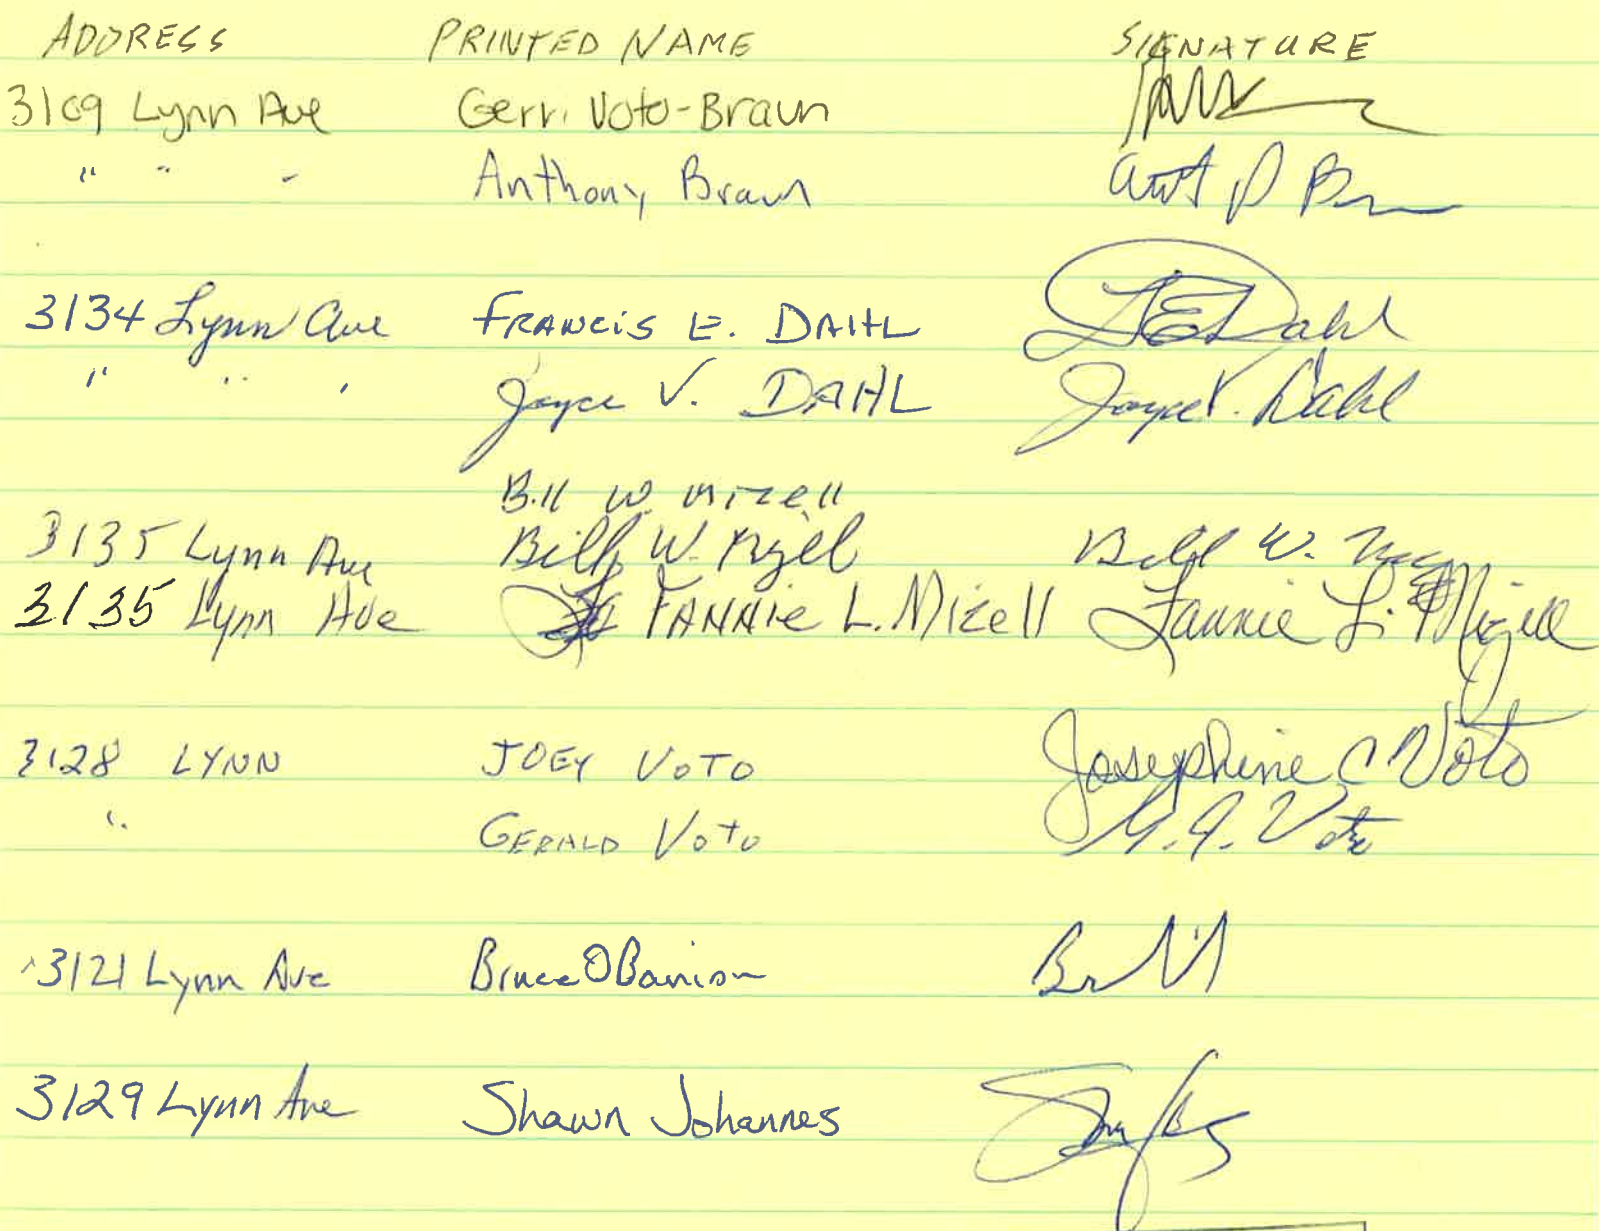 ADDRESS PRINTED NAME SIGNATURE
3109 Lynn Ave Gerri Voto-Braun
" " " Anthony Braun
3134 Lynn Ave FRANCIS E. DAHL F E Dahl
" " " Joyce V. DAHL Joyce V. Dahl
Bill W. Mizell
3135 Lynn Ave Bill W. Mizell Bill W.
3135 Lynn Ave FANNie L. Mizell Fannie L. Mizell
3128 LYNN JOEY VOTO Josephine C Voto
" GERALD VOTO G. J. Voto
3121 Lynn Ave Bruce OBannion
3129 Lynn Ave Shawn Johannes